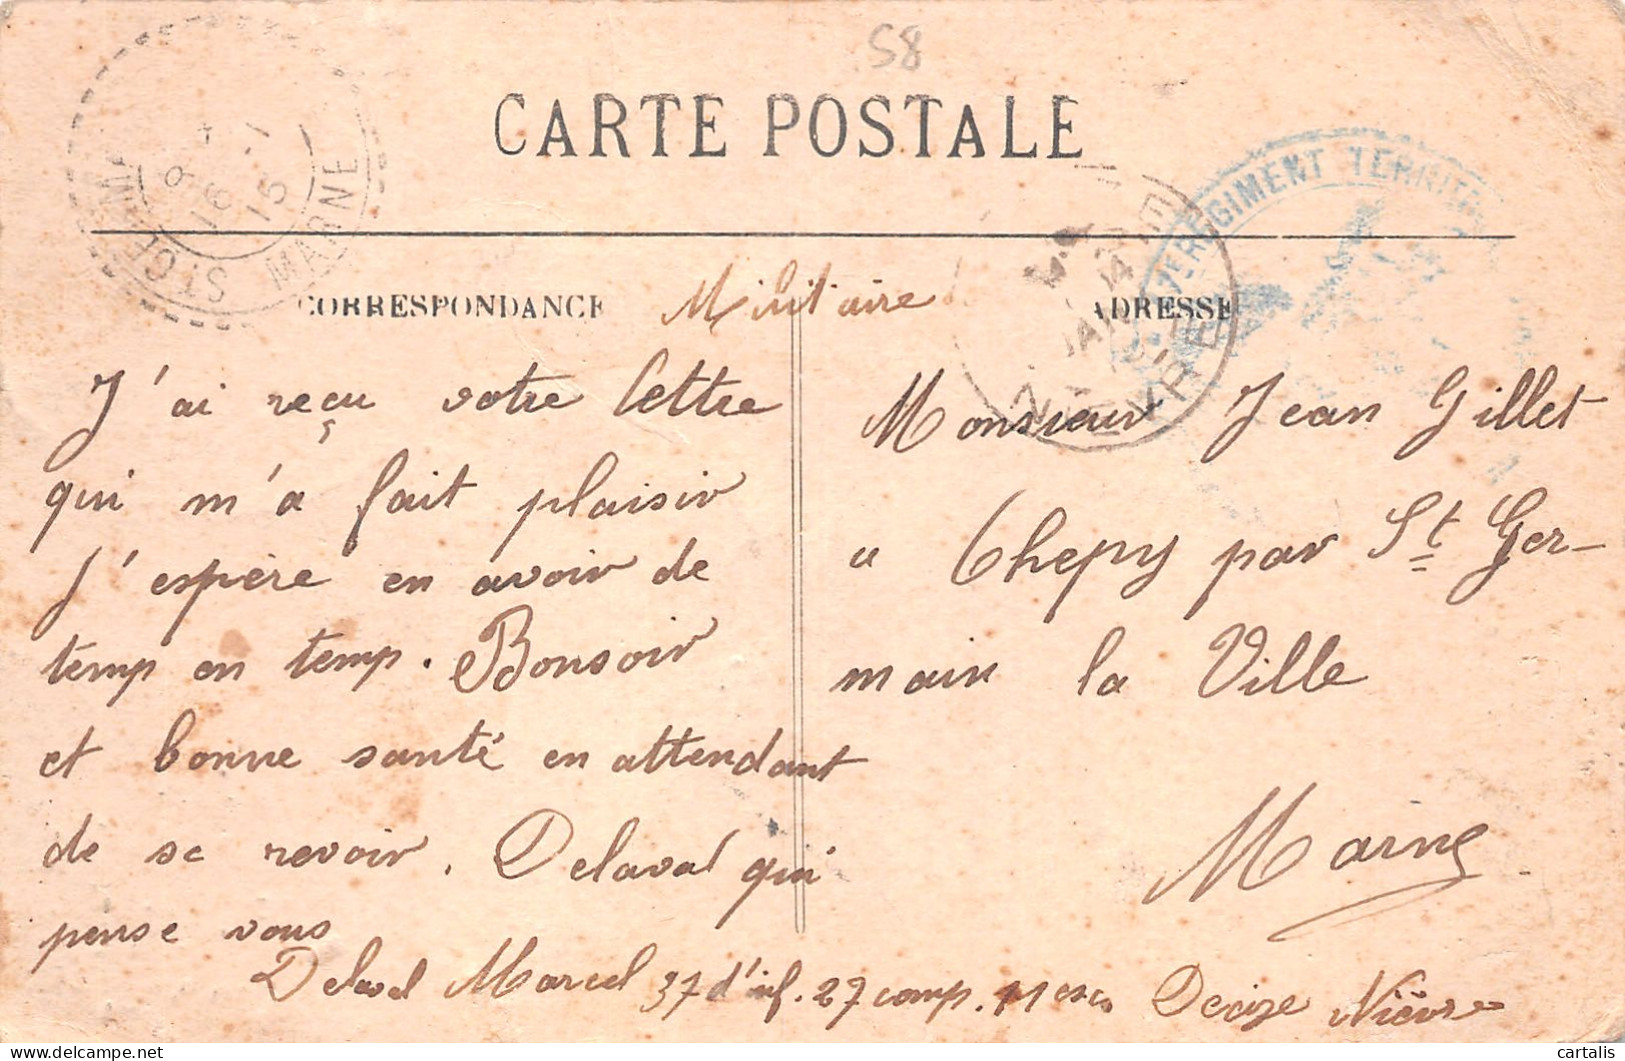 58
CARTE POSTALE
ST GERM MARNE
16 - 1
15
REGIMENT TERRIT
14
NIEVRE
CORRESPONDANCE
Militaire
ADRESSE
J'ai reçu votre lettre
qui m'a fait plaisir
j'espère en avoir de
temp en temp. Bonsoir
et bonne santé en attendant
de se revoir. Delaval qui
pense vous
Delaval Marcel 37 d'inf. 27 comp. Decize Nièvre
Monsieur Jean Gillet
a Chepy par St Ger-
main la Ville
Marne
cartalis
delcampe.net